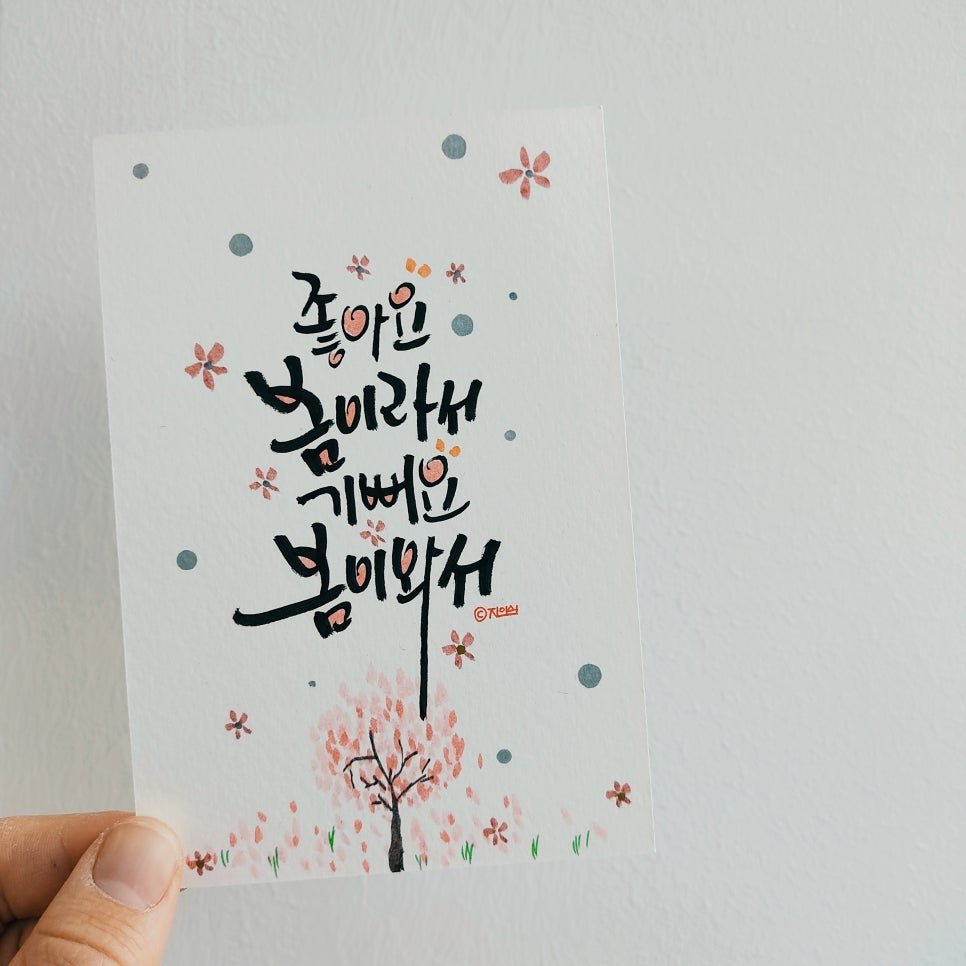 좋아요
봄이라서
기뻐요
봄이와서
©진이심